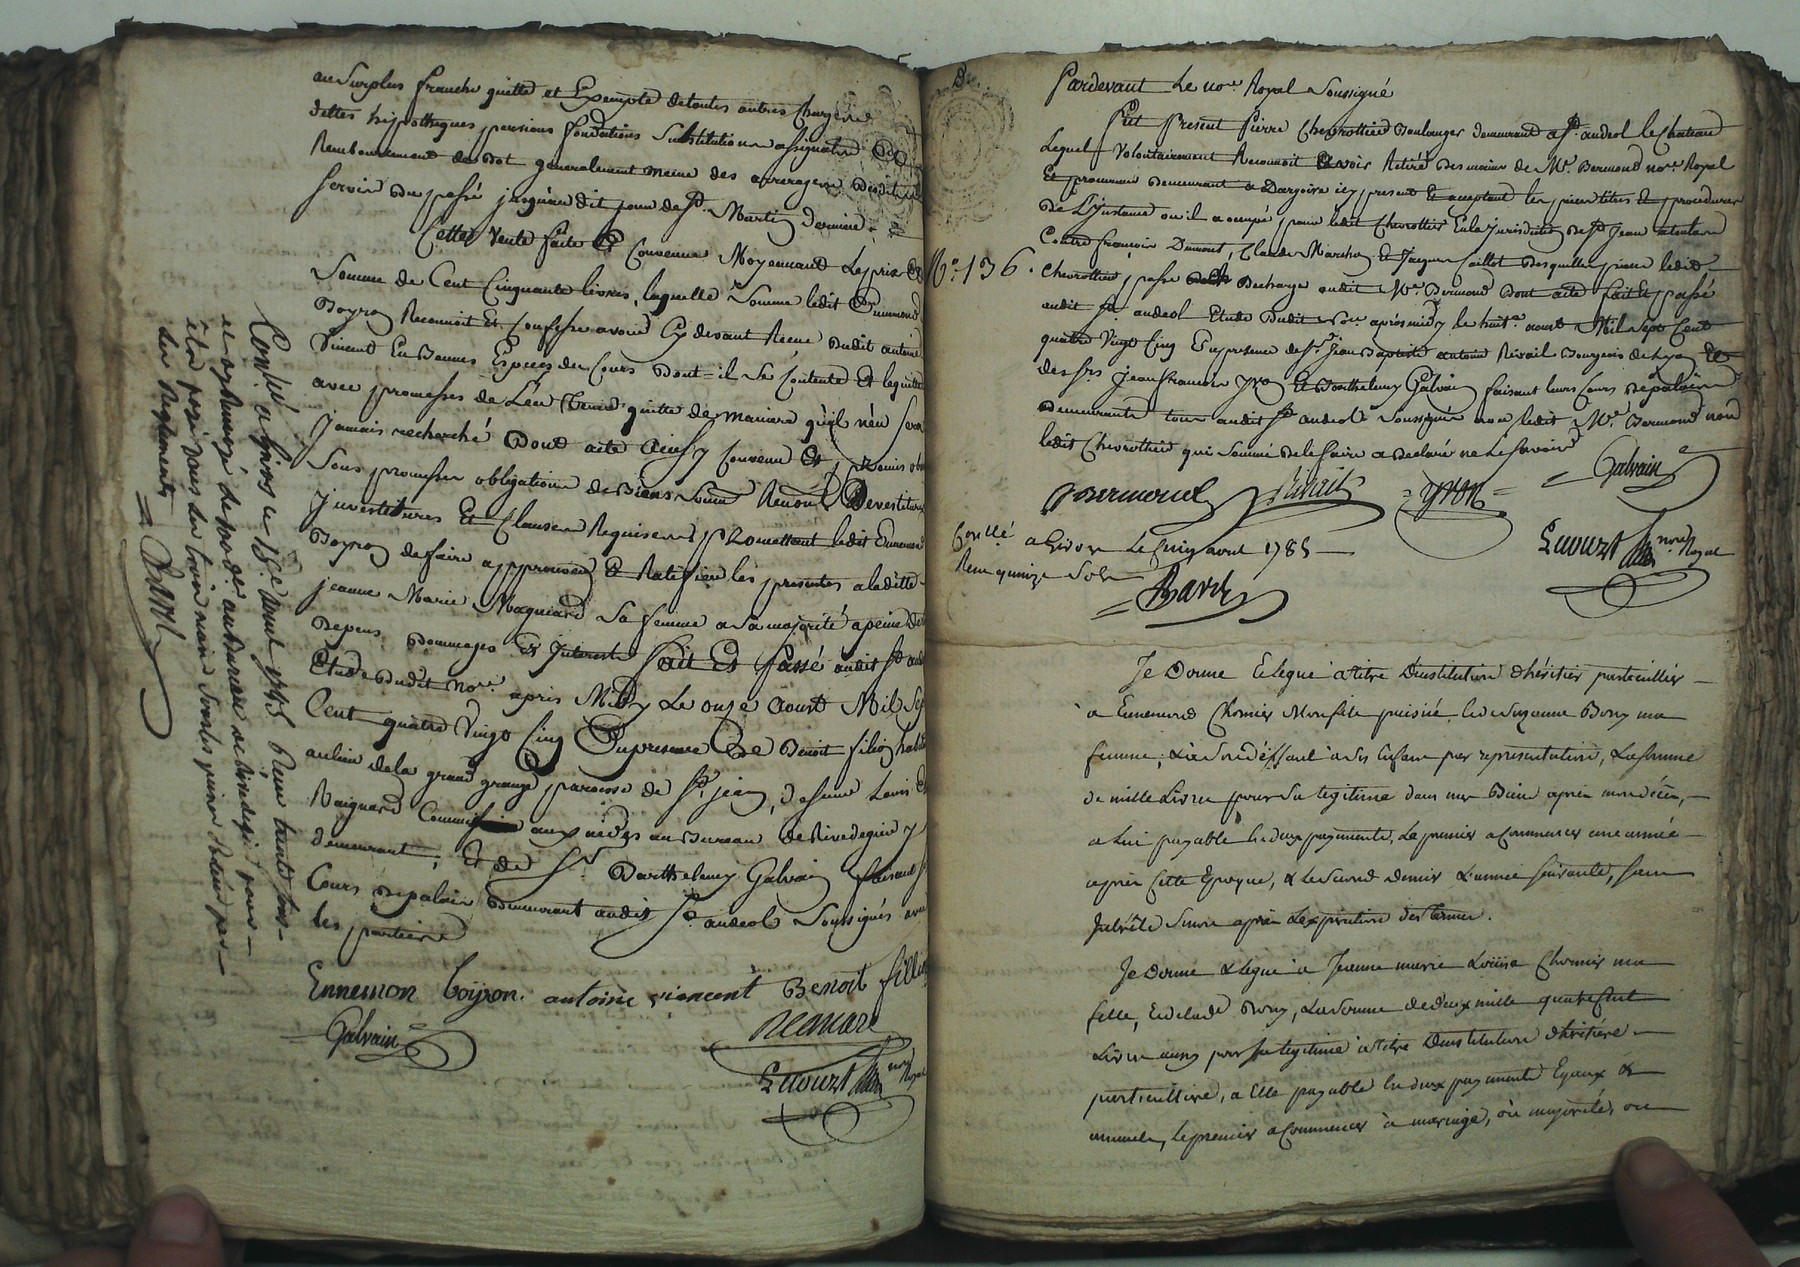 au Surplus franche quitte et Exempte de toutes autres Charges
dettes hipotheques pensions fondations Substitutions assignation
Remboursement de Dot generalement meme des arrerages Dudit
Servis Du passé jusqu'au dit jour de St. Martin dernier
Cette Vente faite Et Convenue Moyennant Le prix Et
Somme de Cent Cinquante livres, laquelle Somme ledit Ennemond
Boyron Reconnoit Et Confesse avoir Cy devant Receue Dudit antoine
Vincent En Bonnes Especes du Cours Dont il Se Contente Et le quitte
avec promesses de L'en tenir quitte de maniere qu'il n'en Sera
Jamais recherché Dont acte Ainsy Convenu Et promis
Sous promesses obligations de Biens Soumis Renoncé Devestitures
Investitures Et Clauses Requises promettant ledit Ennemond
Boyron de faire approuver Et Ratifier les presentes a ladite
jeanne Marie Magniard Sa femme a Sa majorité a peine de
Depens Dommages Et Interets fait Et Passé audit St. andeol
Etude Dudit Nore. apres Midy Le onze Aoust Mil Sept
Cent quatre Vingt Cinq En presence De Benoit filion
au lieu de la grand grange paroisse de St. jean, de sieur Louis
Commis aux aides au Bureau de Rivedegier y
demeurant, Et de Sr. Barthelemy Galvain faisant Ses
Cours de palais Demeurant audit St. andeol Soussignés avec
les parties
Ennemon boyron. antoine vincent Benoit fillion
Galvain
nore Royal
Conllé a Givors ce 18e aout 1785 Recu trente Sols
et renvoyé de au Bureau de Rivedegier pour
être payé dans le mois Sous les peines portées par
les Reglements
Bavet
Pardevant Le nore. Royal Soussigné
Fut Present Pierre Chevrottier Boulanger demeurant a St. andeol le Chateau
Lequel Volontairement Reconnoit avoir Retiré Des mains de Me. Bermond nore. Royal
Et procureur Demeurant a Dargoire icy present Et acceptant les pieces titres Et procedures
De L'Instance ou il a occupé pour ledit Chevrottier En la jurisdiction de St. Jean
Contre francois Dumont, Claude Marchon Et Jacques Caillot Desquelles pieces ledit
No. 136.
Chevrottier passe Decharge audit Me. Bermond Dont acte fait Et passé
audit St. andeol Etude Dudit Nore. apres midy le huit aoust Mil Sept Cent
quatre Vingt Cinq En presence de Sr. Jean Baptiste antoine Rivail Bourgeois de Lyon Et
des Srs. Jean francois Yvon Et Barthelemy Galvain faisant leurs Cours De palais
Demeurants tous audit St. andeol Soussignés avec ledit Me. Bermond non
ledit Chevrottier qui Sommé de le faire a Declaré ne le Savoir
Bermond Rivail yvon Galvain
nore Royal
Conllé a Givors Le Cinq avril 1785
Recu quinze Sols
Bavet
Je Donne & legue à titre D'institution d'héritier particulier
à Ennemond Chomier Mon fils puisné, & de Suzanne Bony ma
femme, & à Son déffaut à Ses Enfans par representation, La Somme
de mille Livres pour Sa legitime dans mes Biens après mon décès,
a Lui payable En deux payements, Le premier a Commencer une année
après Cette Epoque, & Le Second dernier L'année Suivante, Sans
Intérêts Sinon après L'expiration des termes.
Je Donne & Legue à Jeanne marie Louise Chomier ma
fille, & de ladite Bony, La Somme de deux mille quatre Cent
Livres aussi pour Sa legitime à titre D'institution d'héritière
particulière, a Elle payable En deux payements Egaux &
annuels, le premier a Commencer à mariage, où majorité, ou